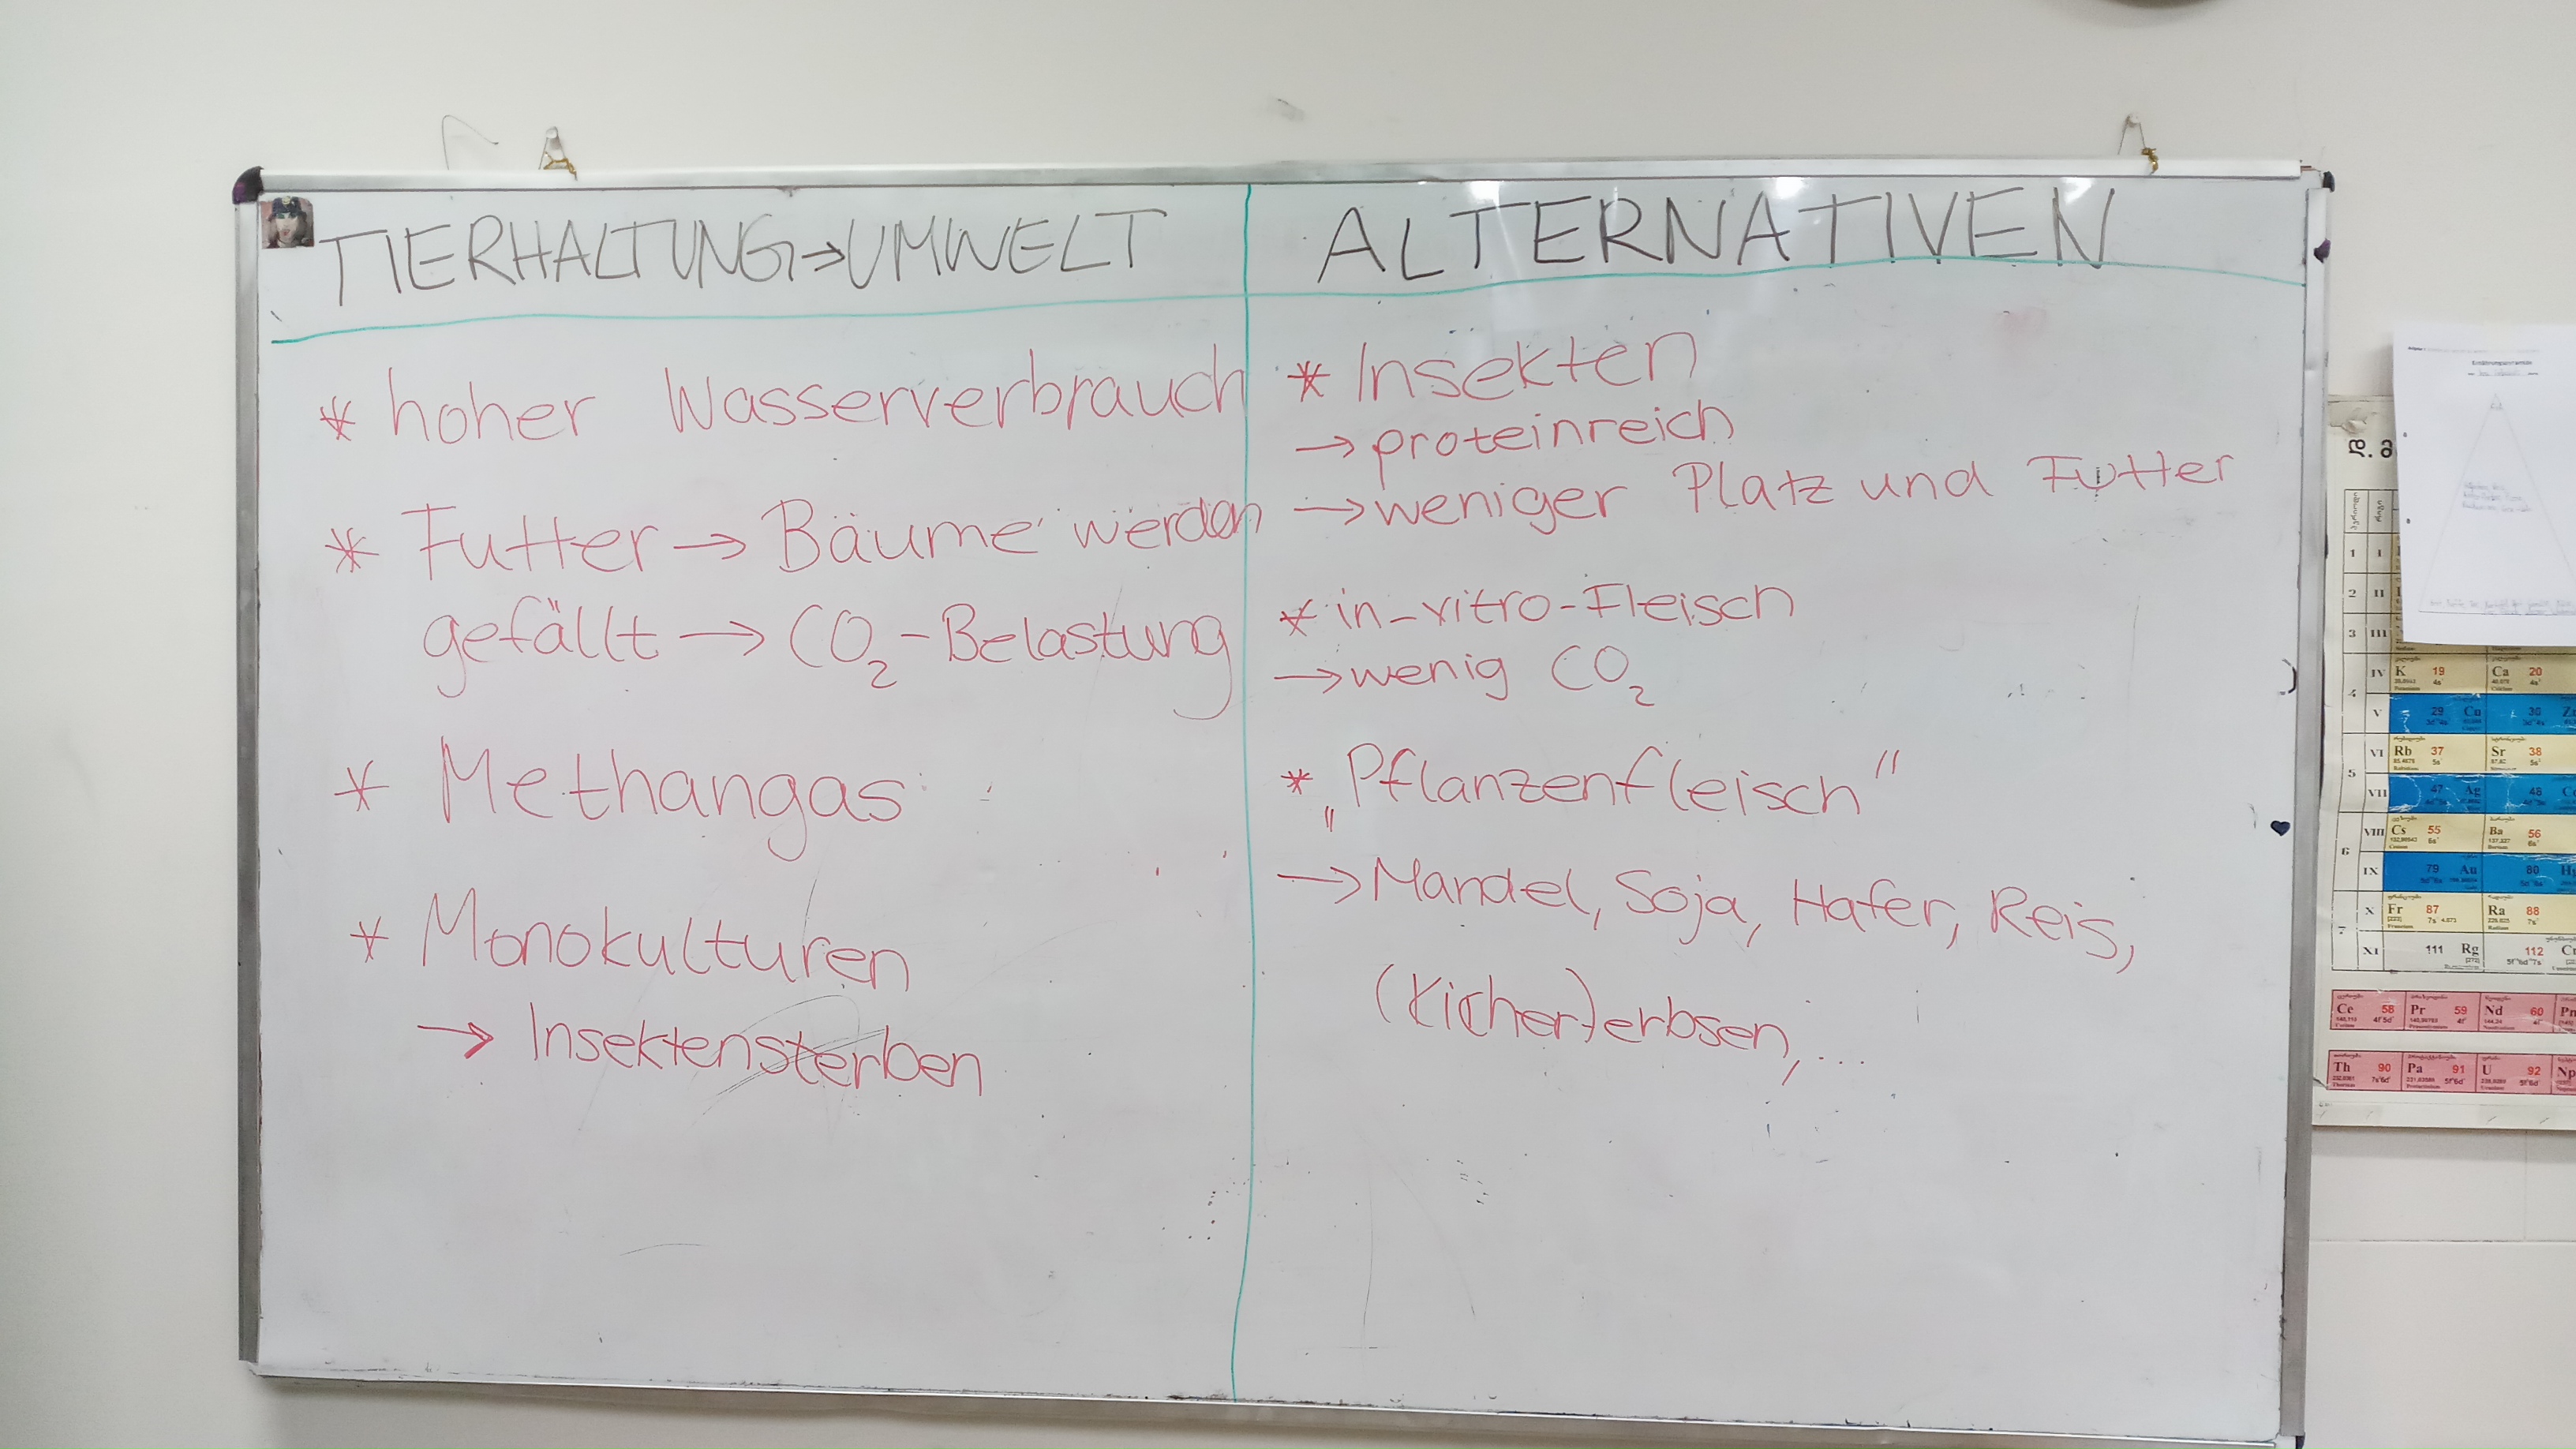 TIERHALTUNG → UMWELT
* hoher Wasserverbrauch
* Futter → Bäume werden
gefällt → CO₂-Belastung
* Methangas
* Monokulturen
→ Insektensterben
ALTERNATIVEN
* Insekten
→ proteinreich
→ weniger Platz und Futter
* in-vitro-Fleisch
→ wenig CO₂
* „Pflanzenfleisch"
→ Mandel, Soja, Hafer, Reis,
(Kicher)erbsen, ...
1 I
2 II
3 III
4
IV K 19 Ca 20
V 29 Cu 30
5
VI Rb 37 Sr 38
VII 47 Ag 48
6
VIII Cs 55 Ba 56
IX 79 Au 80
7
X Fr 87 Ra 88
XI 111 Rg 112
Ce 58 Pr 59 Nd 60
Th 90 Pa 91 U 92 Np